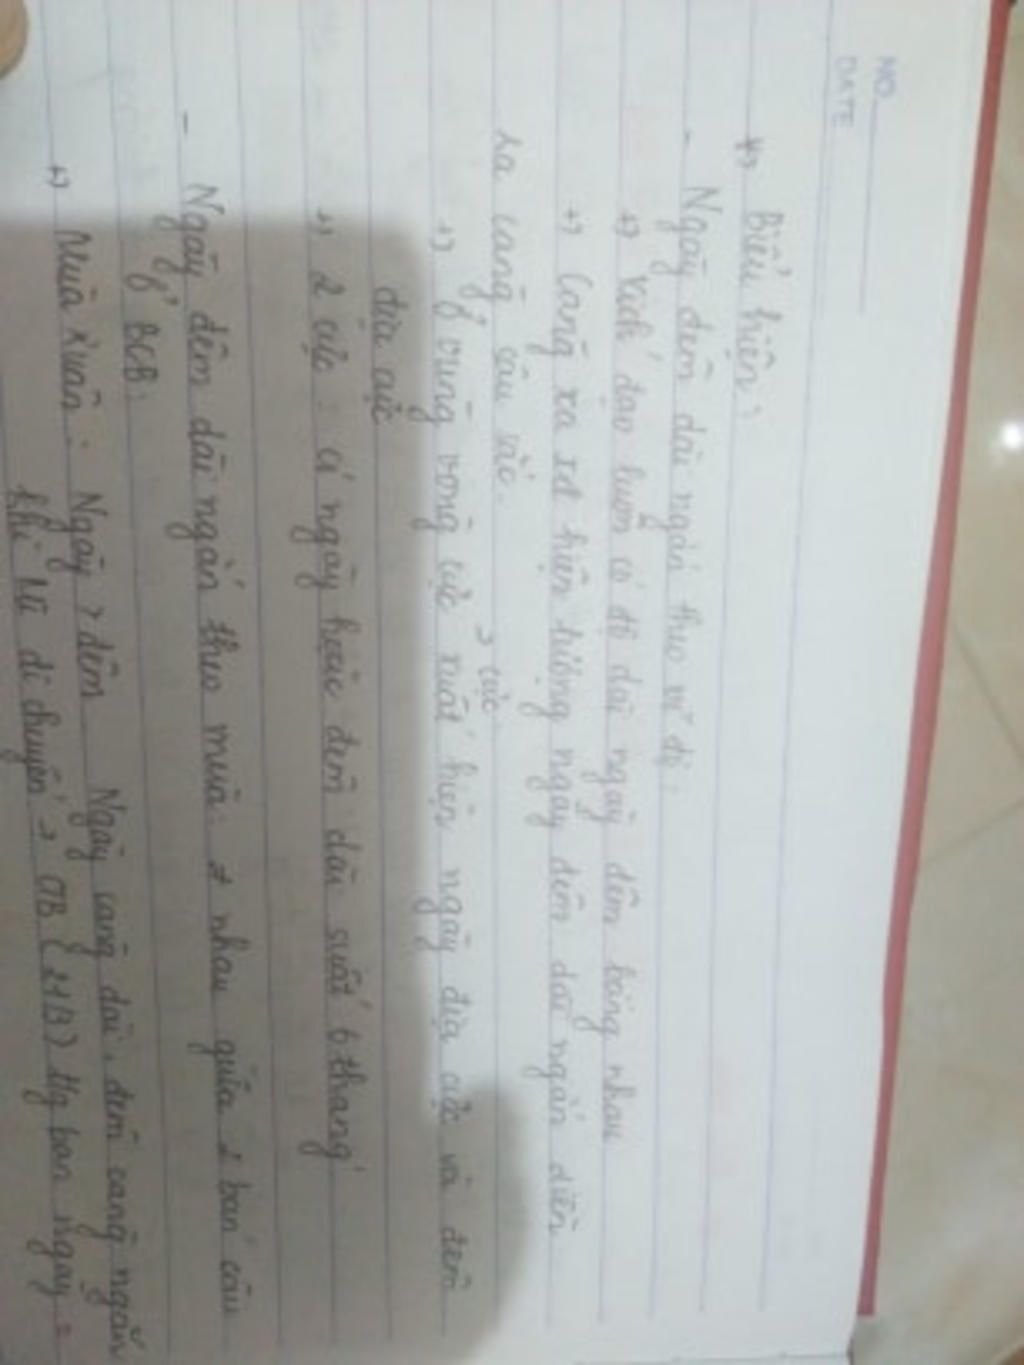 NO.
DATE
+) Biểu hiện:
- Ngày đêm dài ngắn theo vĩ độ:
+) Xích đạo luôn có độ dài ngày đêm bằng nhau
+) Càng xa xđ hiện tượng ngày đêm dài ngắn diễn
ra càng sâu sắc.
→ cực
+) ở vùng vòng cực xuất hiện ngày địa cực và đêm
địa cực
+) 2 cực: có ngày hoặc đêm dài suốt 6 tháng
- Ngày đêm dài ngắn theo mùa ≠ nhau giữa 2 bán cầu
Ở BCB:
+) Mùa xuân: Ngày > đêm Ngày càng dài, đêm càng ngắn
khi di chuyển → CTB (21/3) tg ban ngày =